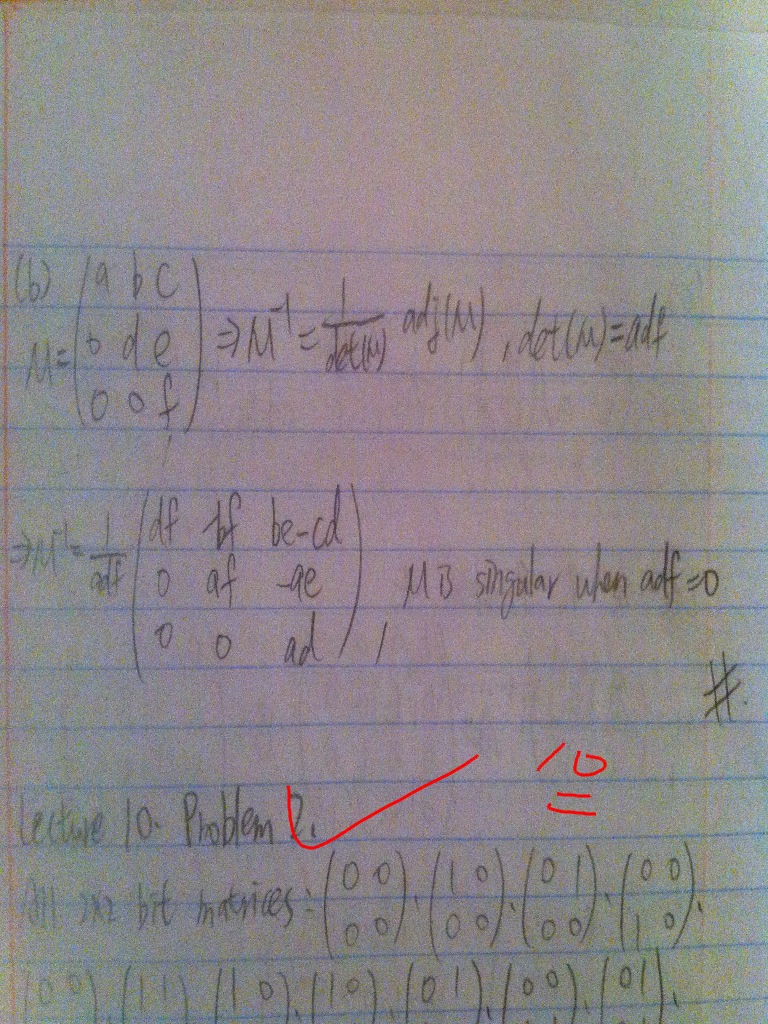 (b) M = ( a b c
0 d e
0 0 f ) ⇒ M⁻¹ = 1/det(M) adj(M), det(M) = adf
⇒ M⁻¹ = 1/adf ( df -bf be-cd
0 af -ae
0 0 ad ), M is singular when adf = 0
#.
10
Lecture 10. Problem 2.
All 2x2 bit matrices: ( 0 0
0 0 ), ( 1 0
0 0 ), ( 0 1
0 0 ), ( 0 0
1 0 ),
( 0 0 ), ( 1 1 ), ( 1 0 ), ( 1 0 ), ( 0 1 ), ( 0 0 ), ( 0 1 ),